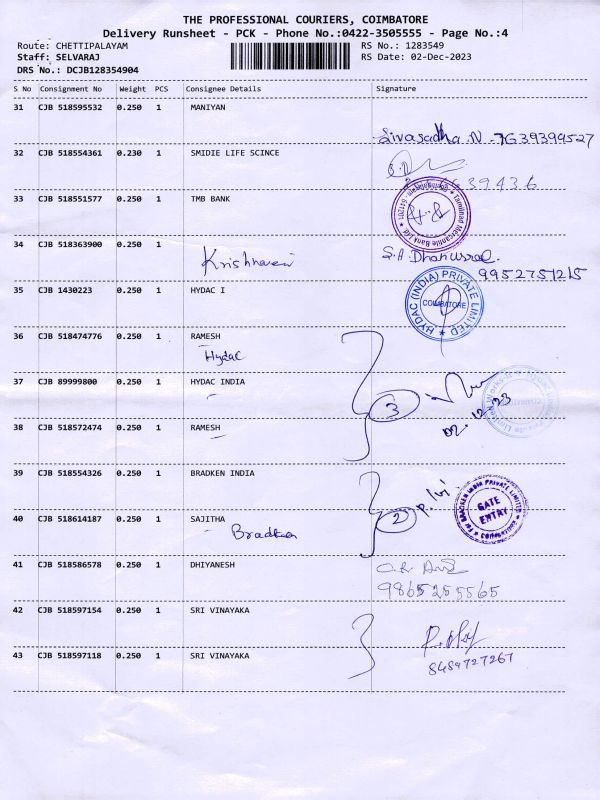 THE PROFESSIONAL COURIERS, COIMBATORE
Delivery Runsheet - PCK - Phone No.:0422-3505555 - Page No.:4
Route: CHETTIPALAYAM RS No.: 1283549
Staff: SELVARAJ RS Date: 02-Dec-2023
DRS No.: DCJB128354904
S No Consignment No Weight PCS Consignee Details Signature
31 CJB 518595532 0.250 1 MANIYAN
Sivasadha.N - 7639399527
32 CJB 518554361 0.230 1 SMIDIE LIFE SCINCE
39436
33 CJB 518551577 0.250 1 TMB BANK
Tamilnad Mercantile Bank Ltd 641201
34 CJB 518363900 0.250 1
Krishnaveni S.A. Dhanusral
9952751215
35 CJB 1430223 0.250 1 HYDAC I
HYDAC (INDIA) PRIVATE LIMITED COIMBATORE
36 CJB 518474776 0.250 1 RAMESH
Hydac
37 CJB 89999800 0.250 1 HYDAC INDIA
3
02.12.23
38 CJB 518572474 0.250 1 RAMESH
39 CJB 518554326 0.250 1 BRADKEN INDIA
BRADKEN INDIA PRIVATE LIMITED GATE ENTRY
40 CJB 518614187 0.250 1 SAJITHA
Bradken 2
41 CJB 518586578 0.250 1 DHIYANESH
9865255565
42 CJB 518597154 0.250 1 SRI VINAYAKA
43 CJB 518597118 0.250 1 SRI VINAYAKA
8489727267